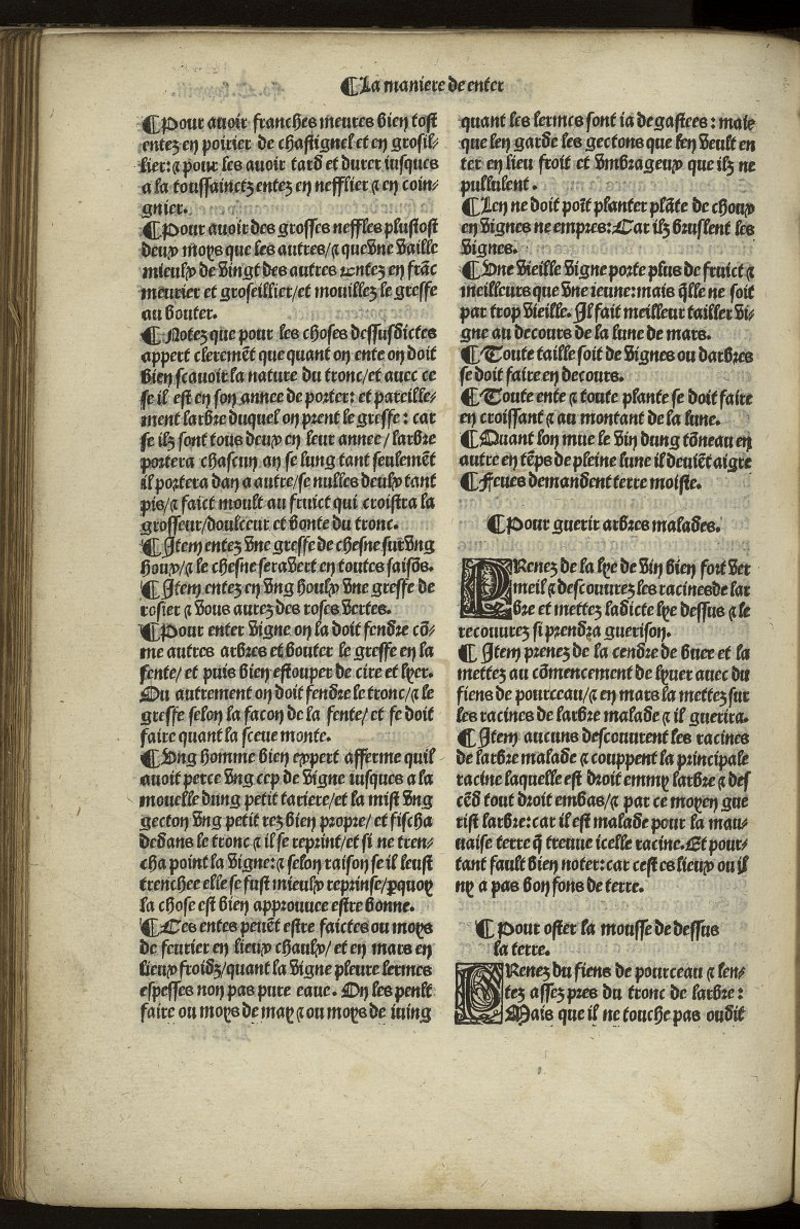 ¶La maniere de enter
¶Pour auoir franches meures bien tost
entez en poirier de chastignel et en grosil/
lier: ⁊ pour les auoir tard et durer iusques
a la toussainctz entez en nefflier ⁊ en coin/
gnier.
¶Pour auoir des grosses neffles plustost
deux moys que les autres/⁊ que vne vaille
mieulx de vingt des autres entez en frãc
meurier et groseillier/et mouillez le greffe
au bouter.
¶Notez que pour les choses dessusdictes
appert cleremẽt que quant on ente on doit
bien scauoir la nature du tronc/et auec ce
se il est en son annee de porter: et pareille/
ment larbre duquel on prent le greffe: car
se ilz sont tous deux en leur annee/larbre
portera chascun an se lung tant seulemẽt
il portera dan a autre/se nulles deulx tant
pis/⁊ faict moult au fruict qui croistra la
grosseur/doulceur et bonte du tronc.
¶Item entez vne greffe de chesne sur vng
houx/⁊ le chesne sera vert en toutes saisõs.
¶Item entez en vng houlx vne greffe de
rosier ⁊ vous aurez des roses vertes.
¶Pour enter vigne on la doit fendre cõ/
me autres arbres et bouter le greffe en la
fente/ et puis bien estouper de cire et lyer.
Ou autrement on doit fendre le tronc/⁊ le
greffe selon la facon de la fente/ et se doit
faire quant la sceue monte.
¶Vng homme bien expert afferme quil
auoit perce vng cep de vigne iusques a la
mouelle dung petit tariere/et la mist vng
gecton vng petit rez bien propre/ et ficha
dedans le tronc ⁊ il se reprint/et si ne tren/
cha point la vigne:⁊ selon raison se il leust
trenchee elle se fust mieulx reprinse/pquoy
la chose est bien approuuee estre bonne.
¶Ces entes peuẽt estre faictes ou moys
de feurier en lieux chaulx/ et en mars en
lieux froidz/quant la vigne pleure lermes
espesses non pas pure eaue. On les peult
faire ou moys de may ⁊ ou moys de iuing
quant les lermes sont ia degastees: mais
que len garde les gectons que len veult en
ter en lieu froit et vmbrageux que ilz ne
pullulent.
¶Len ne doit poĩt planter plãte de choux
en vignes ne empres: Car ilz bruslent les
vignes.
¶Vne vieille vigne porte plus de fruict ⁊
meilleurs que vne ieune: mais q̃lle ne soit
par trop vieille. Il fait meilleur tailler vi/
gne au decours de la lune de mars.
¶Toute taille soit de vignes ou darbres
se doit faire en decours.
¶Toute ente ⁊ toute plante se doit faire
en croissant ⁊ au montant de la lune.
¶Quant lon mue le vin dung tõneau en
autre en tẽps de pleine lune il deuiẽt aigre
¶Feues demandent terre moiste.
¶Pour guerir arbres malades.
PRenez de la lye de vin bien fort ver
meil ⁊ descouurez les racines de lar
bre et mettez ladicte lye dessus ⁊ le
recouurez si prendra guerison.
¶Item prenez de la cendre de buee et la
mettez au cõmencement de lyuer auec du
fiens de pourceau/⁊ en mars la mettez sur
les racines de larbre malade ⁊ il guerira.
¶Item aucuns descouurent les racines
de larbre malade ⁊ couppent la principale
racine laquelle est droit emmy larbre ⁊ des
cẽd tout droit embas/⁊ par ce moyen gue
rist larbre: car il est malade pour la mau/
uaise terre q̃ treuue icelle racine. Et pour/
tant fault bien noter: car cest es lieux ou il
ny a pas bon fons de terre.
¶Pour oster la mousse de dessus
la terre.
PRenez du fiens de pourceau ⁊ len/
tez assez pres du tronc de larbre:
Mais que il ne touche pas oudit